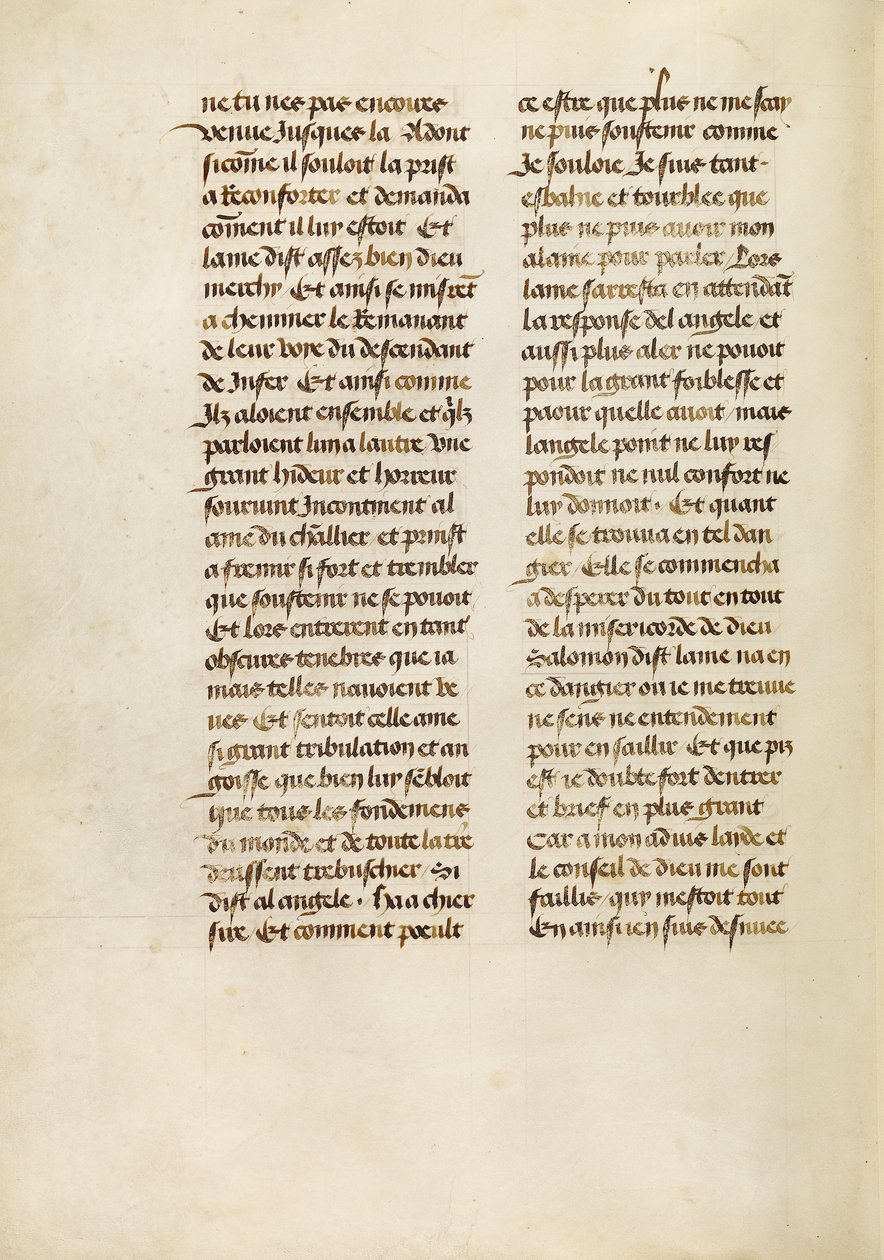 ne tu nes pas encoures
venue Jusques la Adont
si com̄e il souloit la prist
a Reconforter et demanda
com̄ent il luy estoit Et
lame dist assez bien dieu
merchy / Et ainsi se misrēt
a cheminer le Remanant
de leur voye du descendant
de Infer Et ainsi comme
Ilz aloient ensemble et q̄lz
parloient lun a lautre Vne
grant hideur et horreur
souruint Incontinent al
ame du ch̄allier et prinst
a fremir si fort et trembler
que soustenir ne se pouoit /
Et lors entrerent en tant
obscures tenebres que ia
mais telles nauoient ve
ues Et sentoit celle ame
si grant tribulation et an
goisse que bien luy sēbloit
que tous les fondemens
du monde et de toute la tr̄e
deussent trebuschier / Si
dist al angele · Ha a chier
sire / Et comment poeult
ce estre que plus ne me scay
ne puis soustenir comme
Je souloie Je suis tant-
esbahie et tourblee que
plus ne puis auoir mon
alaine pour parler / Lors
lame sarresta en attendāt
la response del angele et
aussi plus aler ne pouoit
pour la grant foiblesse et
paour quelle auoit / mais
langele point ne luy res
pondoit ne nul confort ne
luy donnoit · Et quant
elle se trouua en tel dan
gier / Elle se commencha
a desperer du tout en tout
de la misericorde de dieu
Salomon dist lame na en
ce dangier ou ie me treuue
ne sens ne entendement
pour en saillir Et que piz
est ie doubte fort dentrer
et brief en plus grant
Car a mon aduis layde et
le conseil de dieu me sont
faillis / quy mestoit tout
En ainsi ien suis desnuee